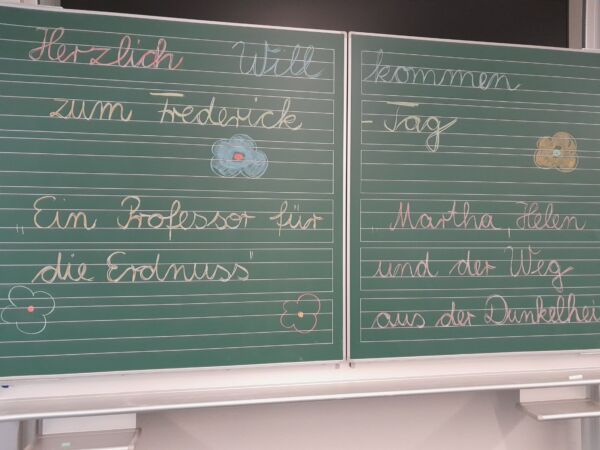 Herzlich Will kommen
zum Frederick - Tag
„Ein Professor für
die Erdnuss“
„Martha, Helen
und der Weg
aus der Dunkelhei